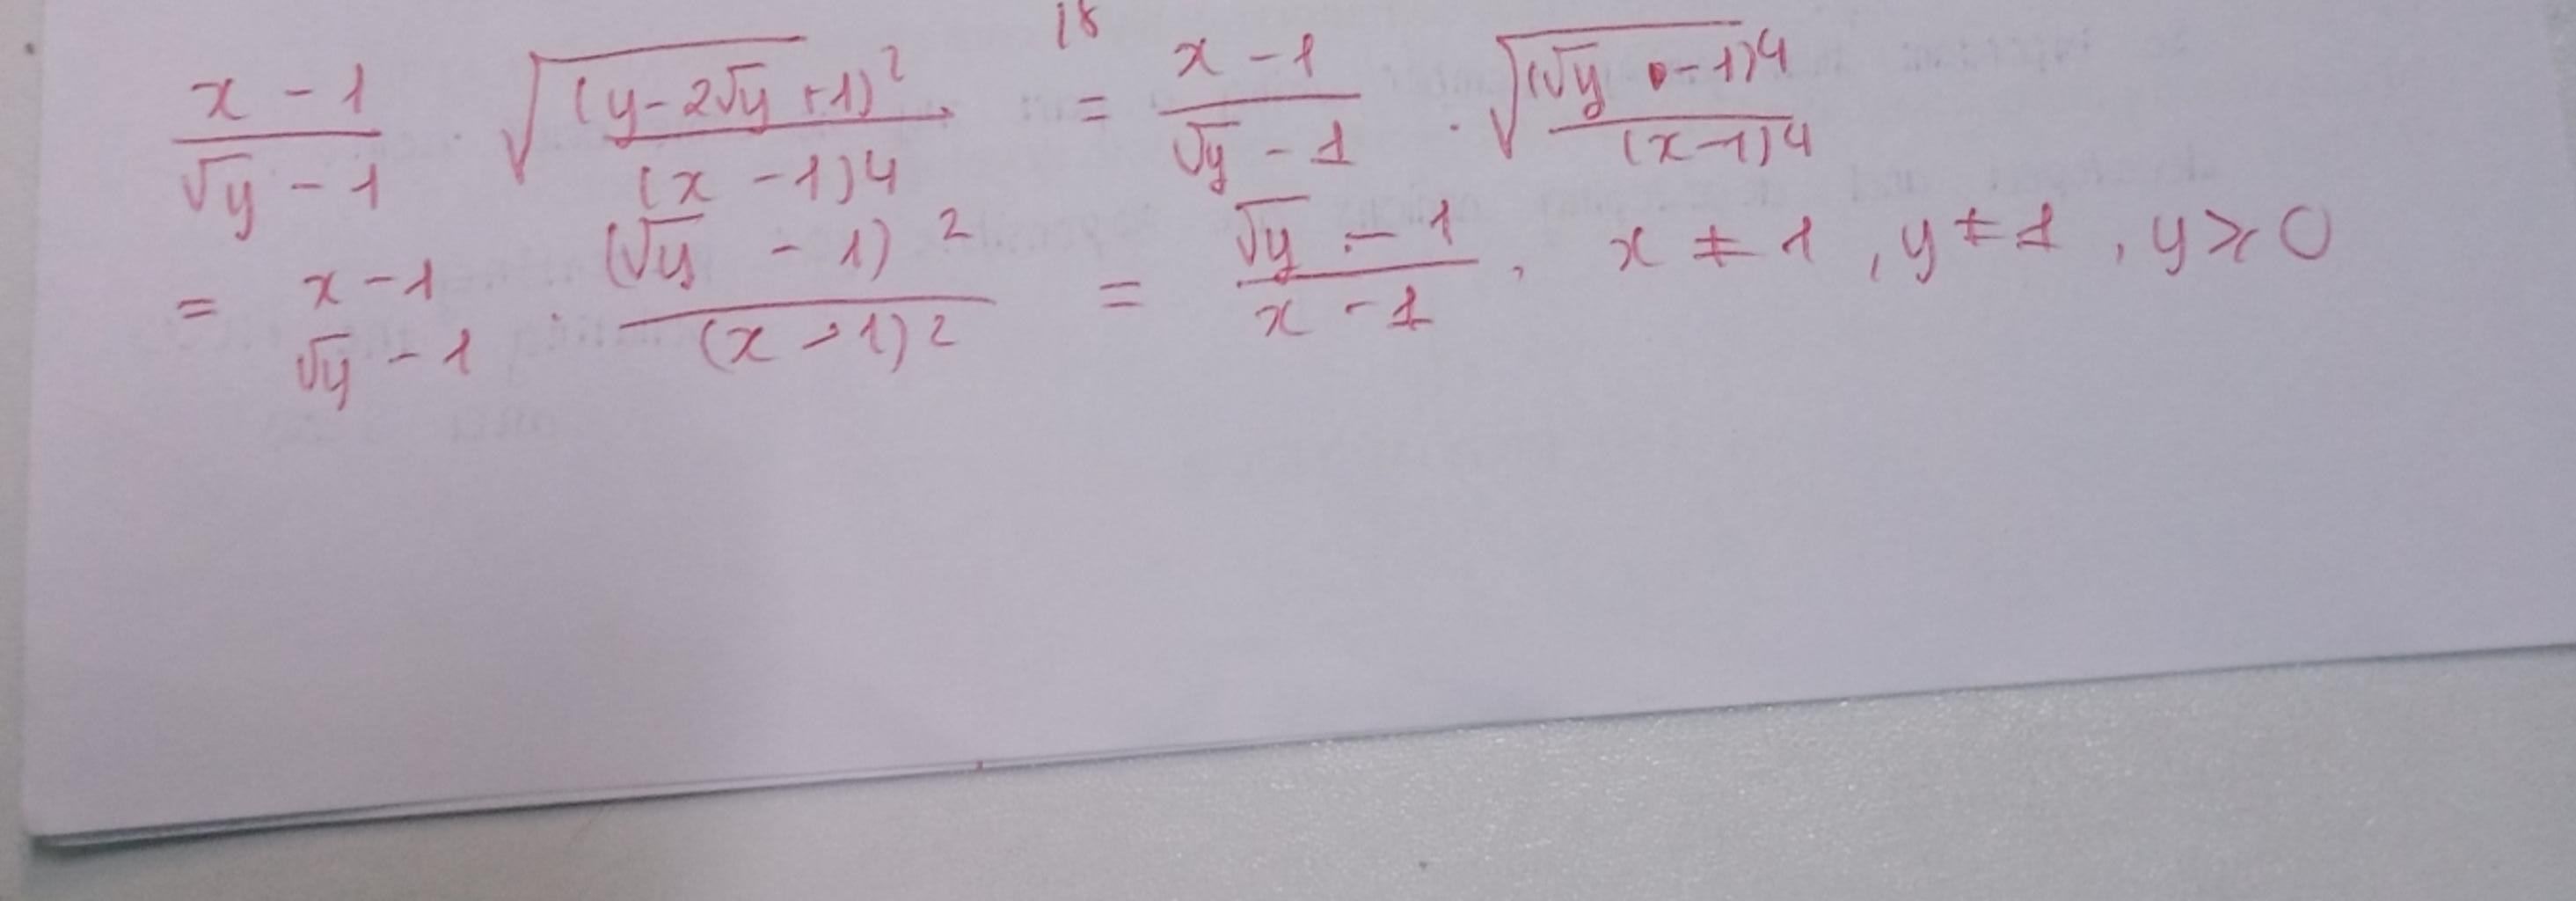 18
x - 1 / √y - 1 · √((y - 2√y + 1)² / (x - 1)4) = x - 1 / √y - 1 · √((√y - 1)4 / (x - 1)4)
= x - 1 / √y - 1 · (√y - 1)² / (x - 1)² = √y - 1 / x - 1 , x ≠ 1 , y ≠ 1 , y ≥ 0